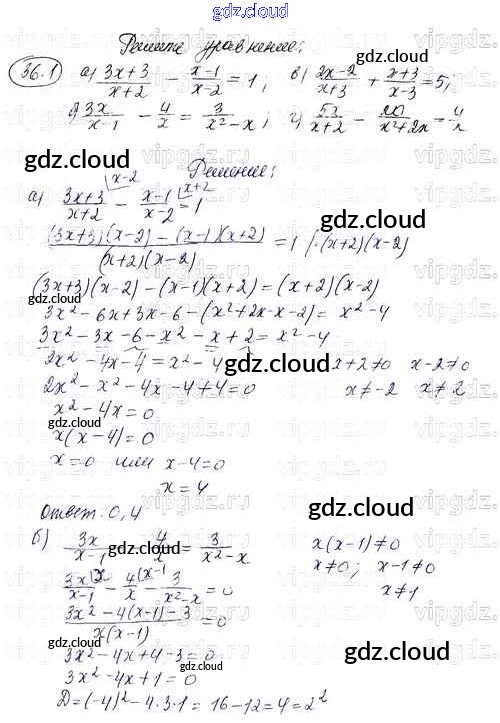 gdz.cloud
Решите уравнение:
36.1 а) (3x+3)/(x+2) − (x−1)/(x−2) = 1, в) (2x−2)/(x+3) + (x+3)/(x−3) = 5;
3x/(x−1) − 4/x = 3/(x²−x); г) 5x/(x+2) − 20/(x²+2x) = 4/x
gdz.cloud
Решение:
а) (3x+3)/(x+2) − (x−1)/(x−2) = 1
x−2 x+2
gdz.cloud
((3x+3)(x−2) − (x−1)(x+2))/((x+2)(x−2)) = 1 /·(x+2)(x−2)
(3x+3)(x−2) − (x−1)(x+2) = (x+2)(x−2)
gdz.cloud
3x² − 6x + 3x − 6 − (x² + 2x − x − 2) = x² − 4
3x² − 3x − 6 − x² − x + 2 = x² − 4
2x² − 4x − 4 = x² − 4 gdz.cloud x+2≠0 x−2≠0
2x² − x² − 4x − 4 + 4 = 0 x≠−2 x≠2
x² − 4x = 0
x(x−4) = 0
x = 0 или x − 4 = 0
x = 4
gdz.cloud
Ответ: 0, 4
gdz.cloud
б) 3x/(x−1) 4/x = 3/(x²−x) x(x−1)≠0
gdz.cloud
x≠0; x−1≠0
3x\x/(x−1) − 4\(x−1)/x − 3/(x²−x) = 0 x≠1
(3x² − 4(x−1) − 3)/(x(x−1)) = 0
3x² − 4x + 4 − 3 = 0
gdz.cloud
3x² − 4x + 1 = 0
gdz.cloud
D = (−4)² − 4·3·1 = 16 − 12 = 4 = 2²